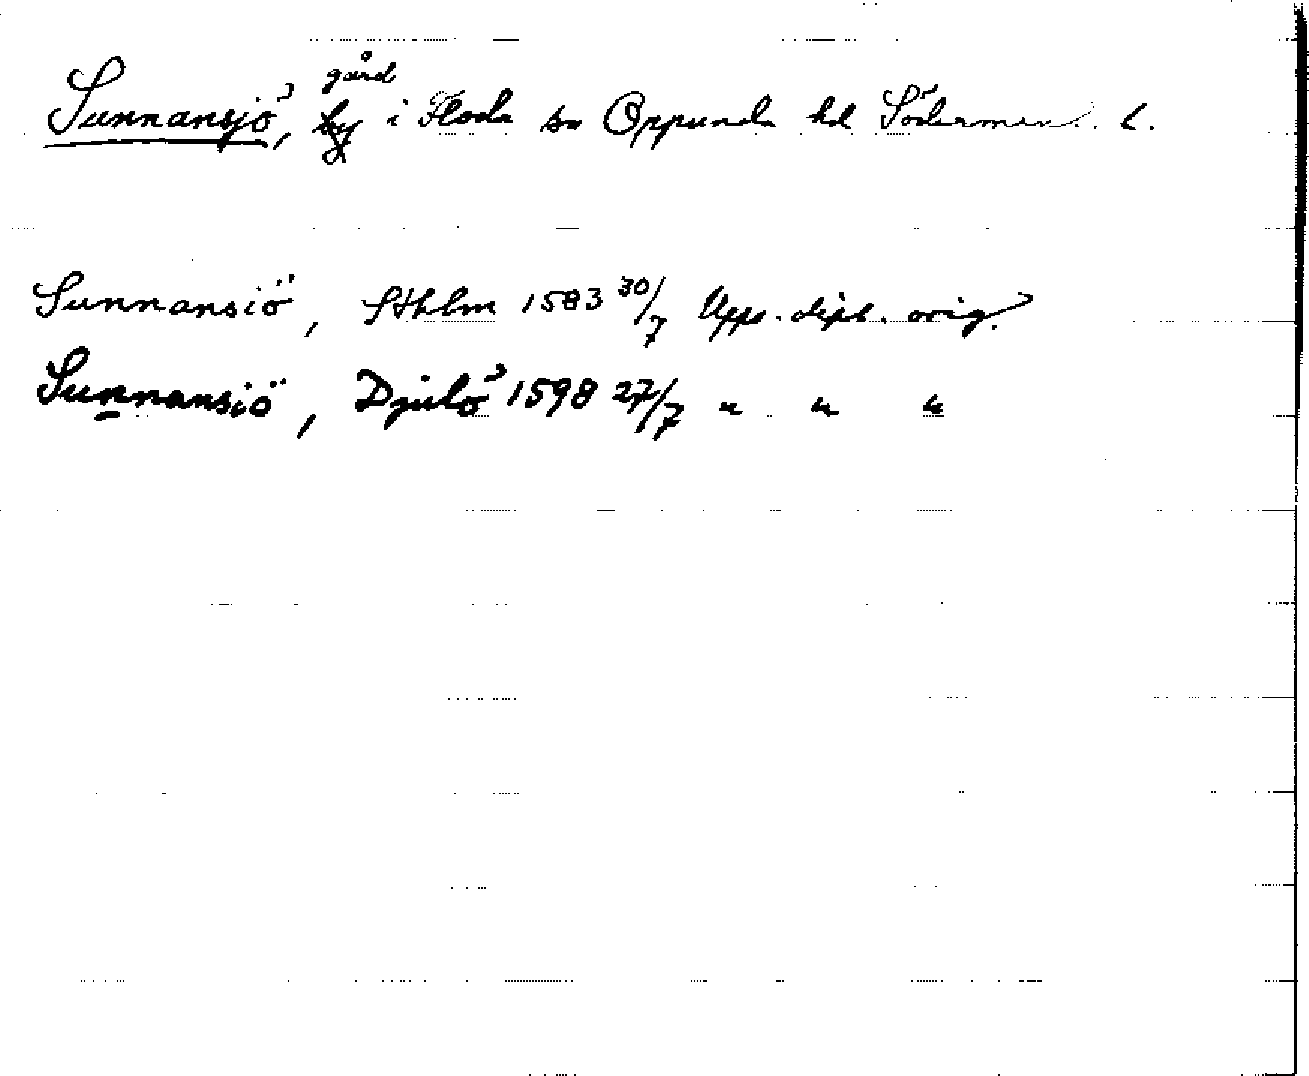 Sunnansjö, gård i Floda sn Oppunda hd Söderman. l.
Sunnansiö, Sthlm 1583 30/7 Upps. dipl. orig.
Sunnansiö, Djulö 1598 27/7 " " "